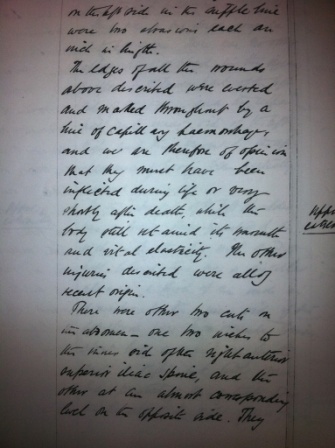 on the left side in the nipple line
were two abrasions each an
inch in length.
The edges of all the wounds
above described were everted
and marked throughout by a
line of capillary haemorrhages,
and we are therefore of opinion
that they must have been
inflicted during life or very
shortly after death, while the
body still retained its warmth
and vital elasticity. The other
injuries described were all of
recent origin.
There were other two cuts on
the abdomen - one two inches to
the inner side of the right anterior
superior iliac spine, and the
other at an almost corresponding
level on the opposite side. They